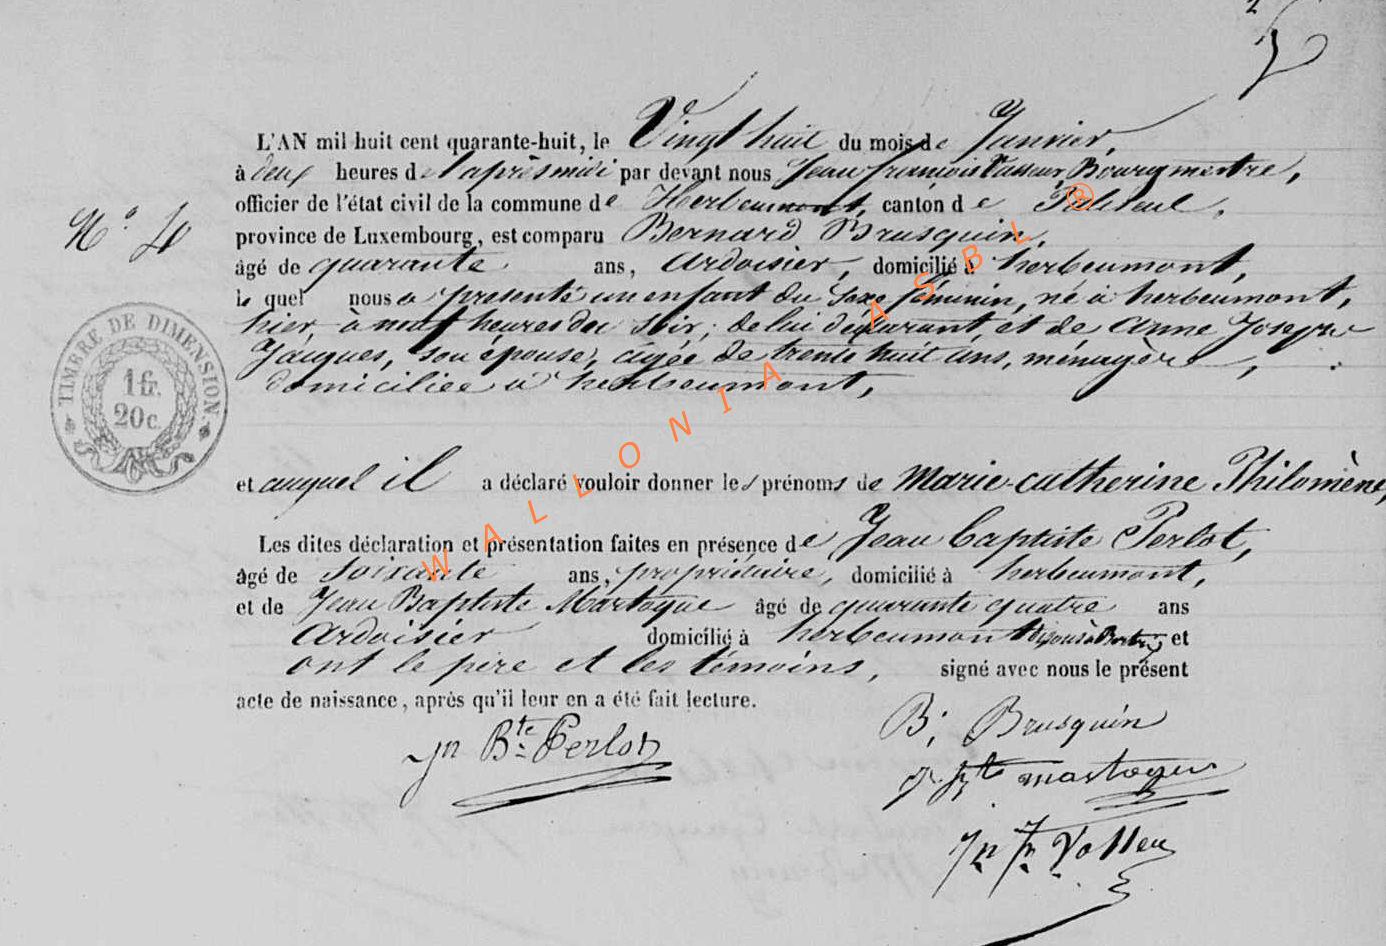 2
L'AN mil huit cent quarante-huit, le Vingt huit du mois de Janvier,
à deux heures de l'après midi par devant nous Jean françois Vasseur, Bourgmestre,
officier de l'état civil de la commune de Herbeumont, canton de Paliseul,
N.º 4
province de Luxembourg, est comparu Bernard Brusquin,
âgé de quarante ans, Ardoisier, domicilié à herbeumont,
le quel nous a presenté un enfant du Sexe féminin, né à herbeumont,
hier, à neuf heures du Soir, de lui déclarant, et de Anne Joseph
Jacques, son épouse, agée de trente huit ans, ménagère,
domiciliée à herbeumont,
TIMBRE DE DIMENSION.
1 fr.
20 c.
et auquel il a déclaré vouloir donner les prénoms de Marie-catherine Philomène,
Les dites déclaration et présentation faites en présence de Jean baptiste Perlot,
âgé de Soixante ans, propriétaire, domicilié à herbeumont,
et de Jean Baptiste Martogue âgé de quarante quatre ans
Ardoisier domicilié à herbeumont et
ont le père et les témoins, signé avec nous le présent
acte de naissance, après qu'il leur en a été fait lecture.
B; Brusquin
Jn Bte Perlot
J. Bte martogue
Jn Fs
WALLONIA ASBL ®